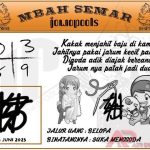 MBAH SEMAR
jon.ogpools
Kakak menjahit baju di kam
Jahitnya pakai jarum kecil pan
Digoda adik diajak bercan
Jarum nya patah jadi du
0 3
6 9
JUNI 2025
JALUR UANG : SELOPA
BINATANGNYA : SUKA MENGGODA